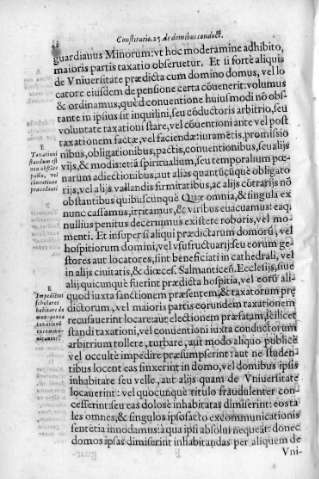 Constitutio. 25 de domibus conduct.
guardianus Minorum: vt hoc moderamine adhibito,
maioris partis taxatio obseruetur. Et si forte aliquis
de Vniuersitate prædicta cum domino domus, vel lo
catore eiusdem de pensione certa cōuenerit: volumus
& ordinamus, quod conuentione huiusmodi nō obs-
tante in ipsius sit inquilini, seu cōductoris arbitrio, seu
voluntate taxationi stare, vel cōuentioni ante vel post
taxationem factæ, vel faciendæ: iuramētis, promissio
nibus, obligationibus, pactis, conuentionibus, seu alijs
vijs, & modis etiā spiritualium, seu temporalium pœ-
narum adiectionibus, aut alias quantūcūque obligato
rijs, vel alijs vallandis firmitatibus, ac alijs cōtrarijs nō
obstantibus quibuscūnque Quæ omnia, & singula ex
nunc cassamus, irritamus, & viribus euacuamus: eaq;
nullius penitus decernimus existere roboris, vel mo-
menti. Et insuper si aliqui prædictarum domorū, vel
hospitiorum domini, vel vsufructuarij seu eorum ge-
stores aut locatores, siut beneficiati in cathedrali, vel
in alijs ciuitatis, & diœces. Salmanticeñ. Ecclesijs, siue
alij quicunque fuerint prædicta hospitia, vel eorū ali-
quod iuxta sanctionem præsentem, & taxatorum præ
dictorum, vel maioris partis eorundem taxationem
recusauerint locare: aut electionem præfatam, scilicet
standi taxationi, vel conuentioni iuxta conductorum
arbitrium tollere, turbare, aut modo aliquo publicè
vel occultè impedire præsumpserint: aut ne studen-
tibus locent eas finxerint in domo, vel domibus ipsis
inhabitare seu velle, aut alijs quam de Vniuersitate
locauerint: vel quocunque titulo fraudulenter con-
cesserint. seu eas dolosè inhabitatas dimiserint: eos ta
les omnes, & singulos ipso facto excommunicationis
sententia innodamus: à qua ipsi absolui nequeāt: donec
domos ipsas dimiserint inhabitandas per aliquem de
Vni-
1
Taxationi
standum est
non obstan
pactis, vel
conuentione
præcedenti
2
Impediens
scholares
habitare do
mos
taxationi
excommu-
nicamus.